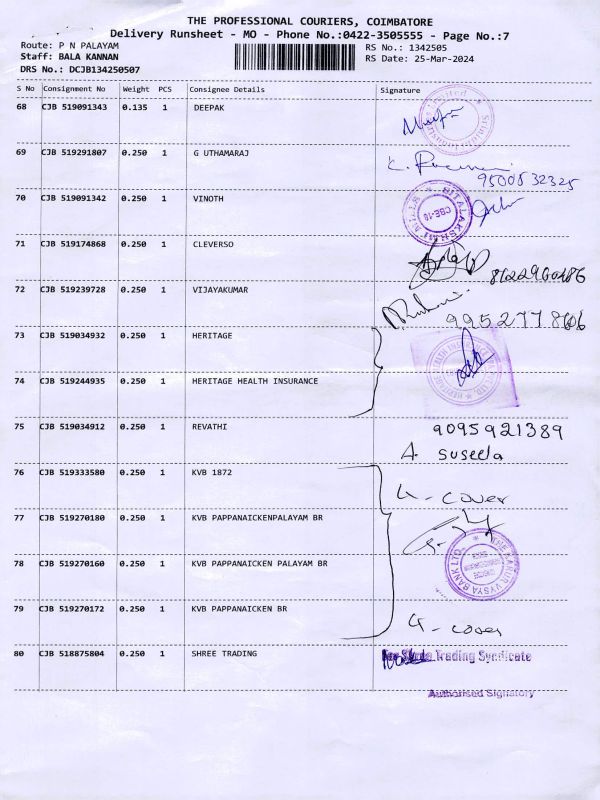 THE PROFESSIONAL COURIERS, COIMBATORE
Delivery Runsheet - MO - Phone No.:0422-3505555 - Page No.:7
Route: P N PALAYAM
RS No.: 1342505
Staff: BALA KANNAN
RS Date: 25-Mar-2024
DRS No.: DCJB134250507
S No Consignment No Weight PCS Consignee Details Signature
68 CJB 519091343 0.135 1 DEEPAK
69 CJB 519291807 0.250 1 G UTHAMARAJ
9500832325
70 CJB 519091342 0.250 1 VINOTH
71 CJB 519174868 0.250 1 CLEVERSO
8622960486
72 CJB 519239728 0.250 1 VIJAYAKUMAR
9952778606
73 CJB 519034932 0.250 1 HERITAGE
74 CJB 519244935 0.250 1 HERITAGE HEALTH INSURANCE
75 CJB 519034912 0.250 1 REVATHI 9095921389
A. suseela
76 CJB 519333580 0.250 1 KVB 1872
4 - cover
77 CJB 519270180 0.250 1 KVB PAPPANAICKENPALAYAM BR
78 CJB 519270160 0.250 1 KVB PAPPANAICKEN PALAYAM BR
THE KARUR VYSYA BANK LTD.
79 CJB 519270172 0.250 1 KVB PAPPANAICKEN BR
4 - cover
80 CJB 518875804 0.250 1 SHREE TRADING Trading Syndicate
Authorised Signatory